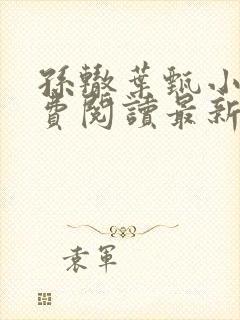 孫轍葉甄小
費閱讀最新
袁軍